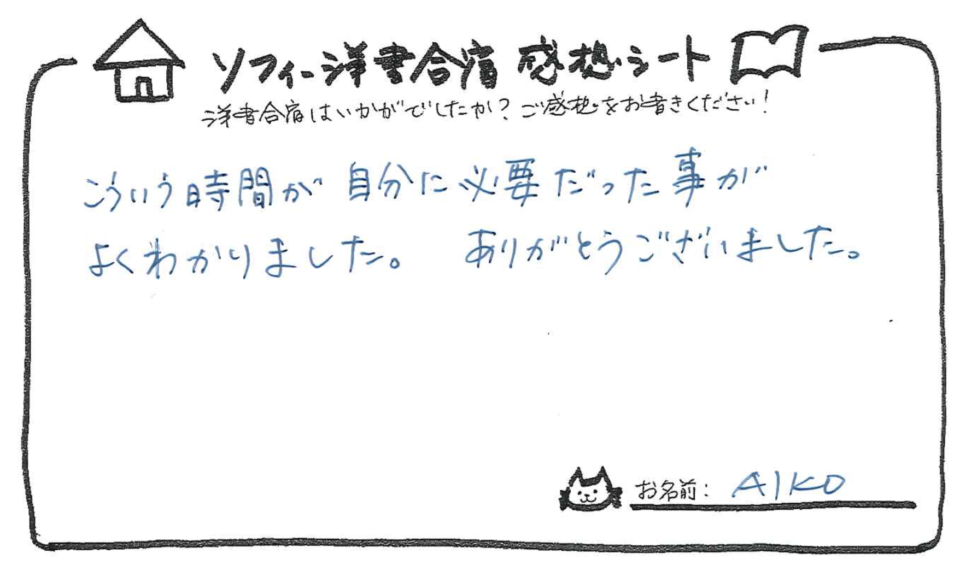 ソフィー洋書合宿 感想シート
洋書合宿はいかがでしたか？ご感想をお書きください！
こういう時間が 自分に必要だった事が
よくわかりました。 ありがとうございました。
お名前: AIKO